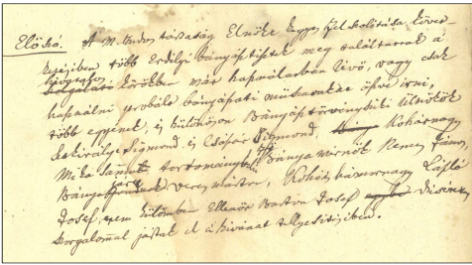 Előszó. A M. Tudós társaság Elnöke Egyes felszolítása követ-
kezésiben több Erdélyi bányásztisztek meg találtattak a
hivatalos körökben már használatban lévő, vagy csak
használni próbált bányászati műszavakat öszve írni,
több egyének, és különösön Bányásztörvényszéki Ülnökök
Szentkirályi Sigmond, és Császár Sigmond, Kohárnagy
Mike Sámuel tartományi Bánya mérnök Nemes János,
Bánya Veres máston, Kohász kárnagy László
Josef, nem különben Ellenőr Bartva Josef disires
szorgalommal jártak el a kívánat tellyesítésében.